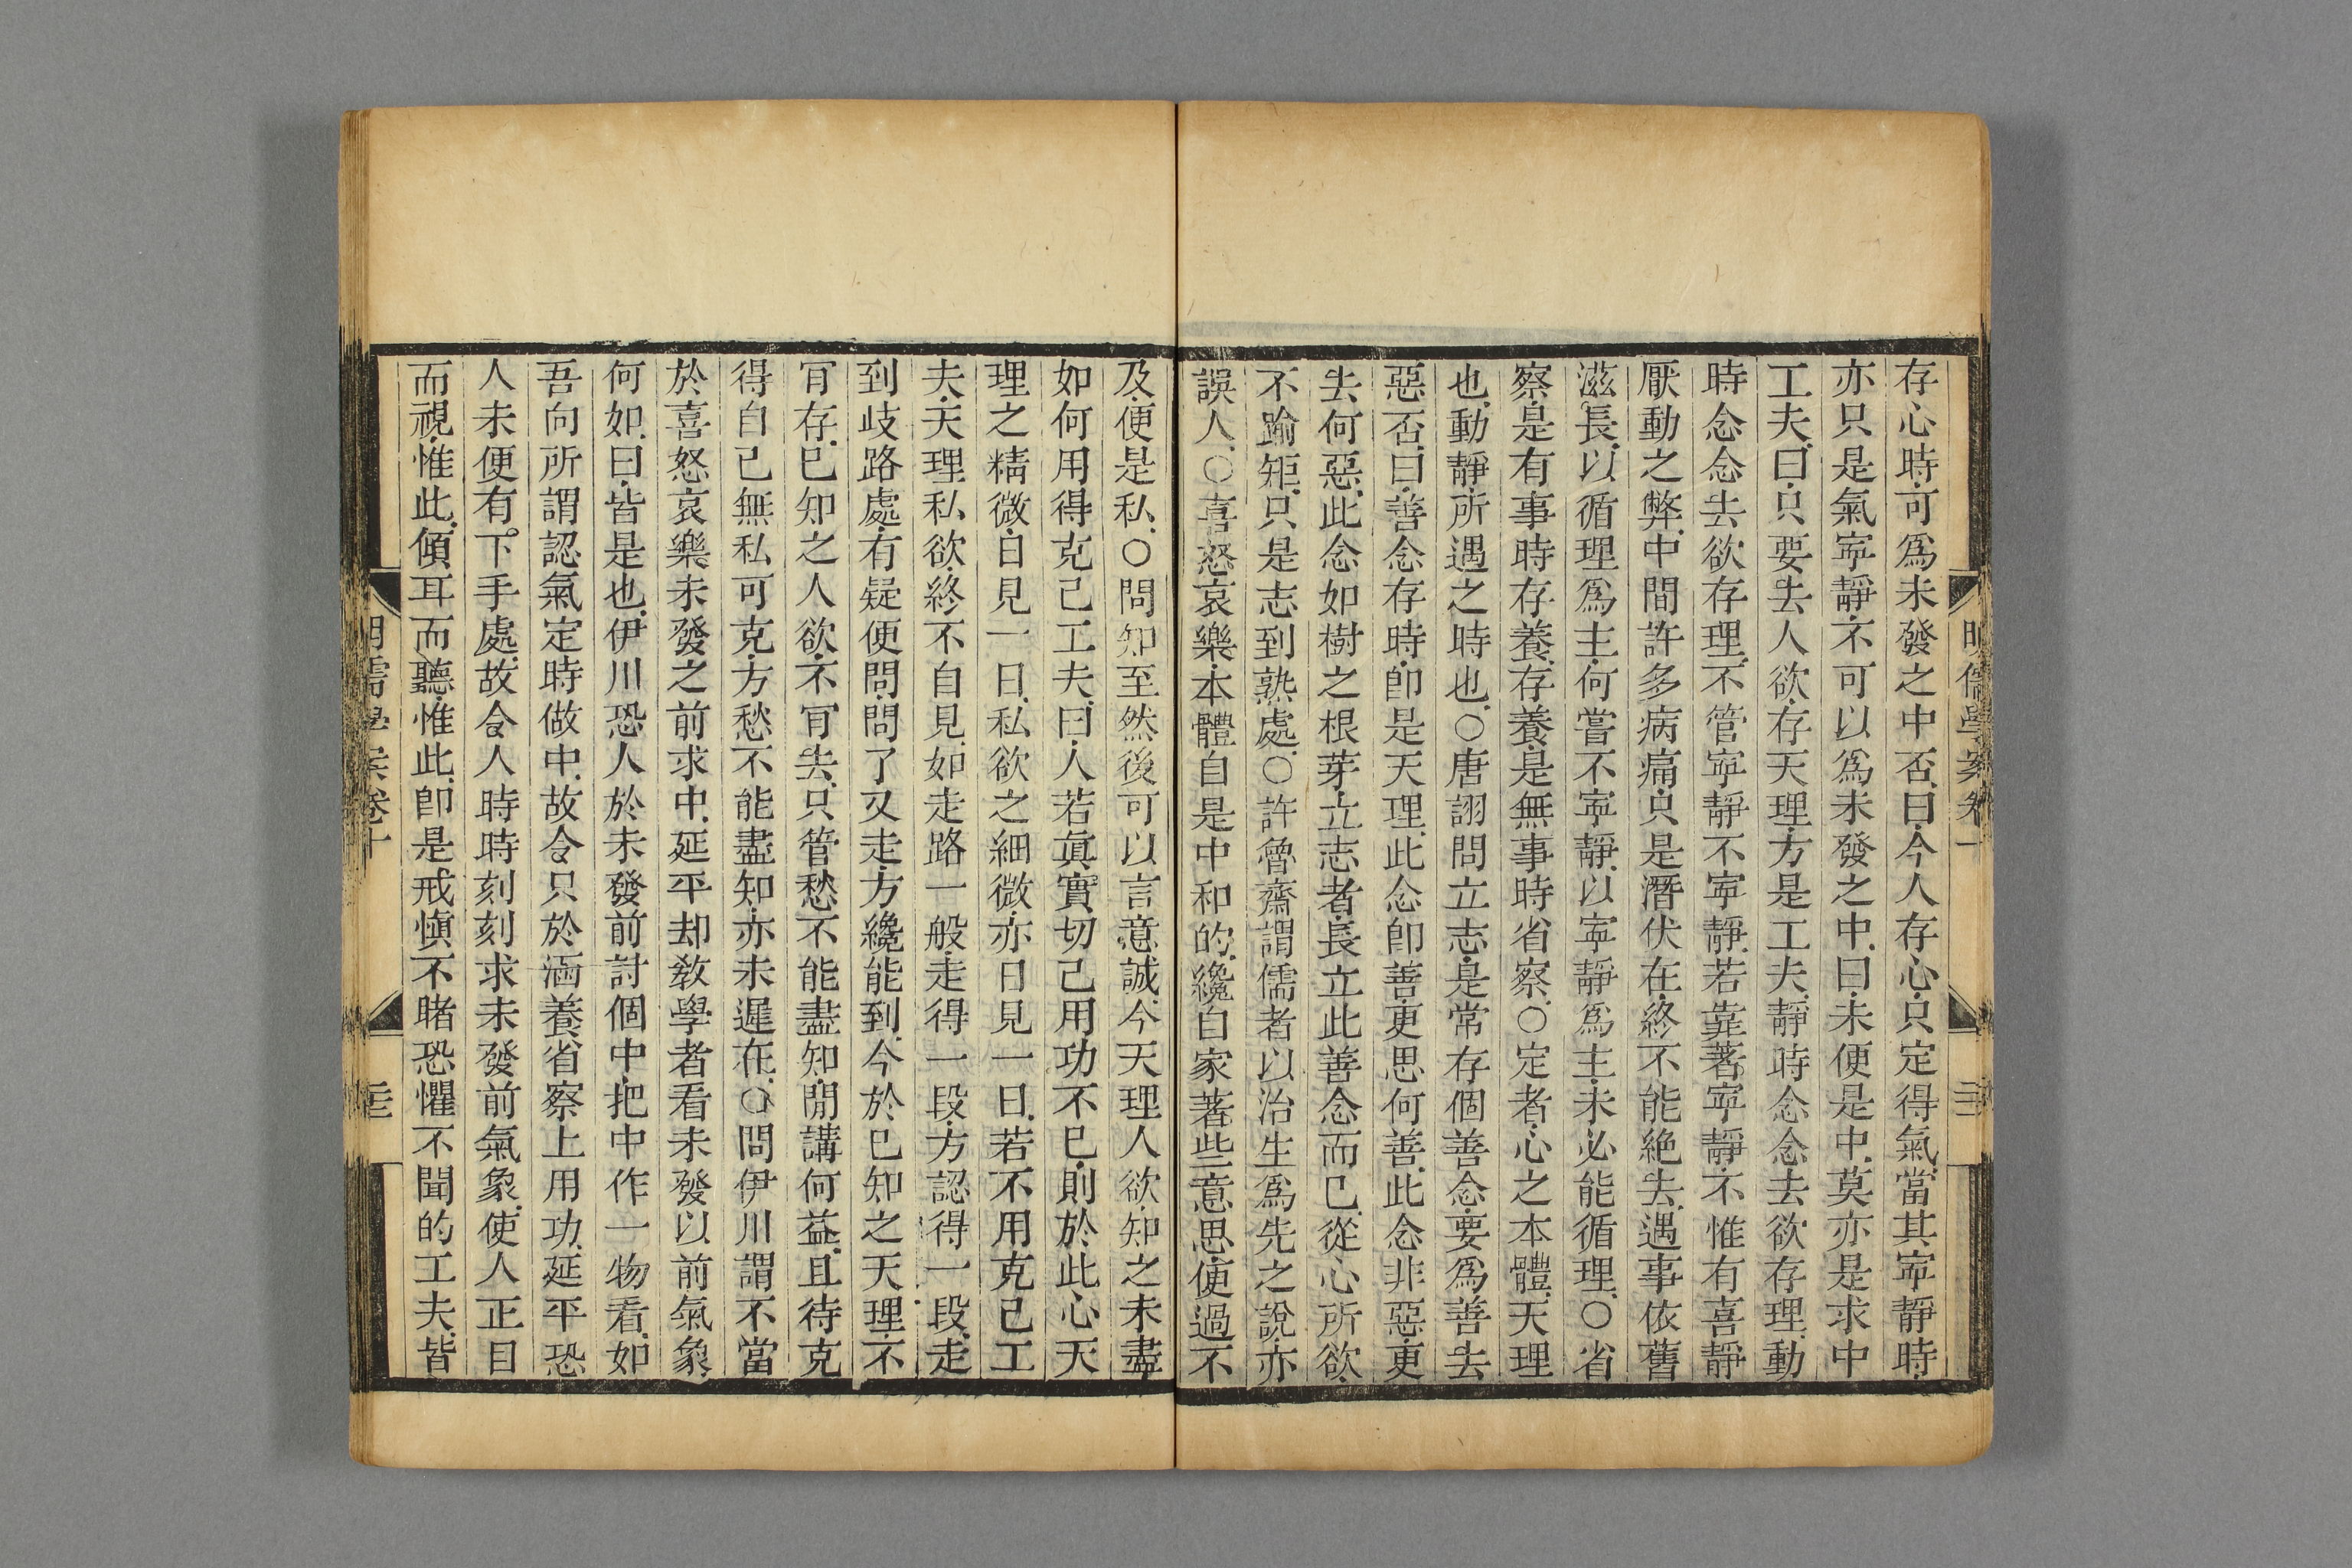 存心時可爲未發之中否曰今人存心只定得氣當其寧靜時
亦只是氣寧靜不可以爲未發之中曰未便是中莫亦是求中
工夫曰只要去人欲存天理方是工夫靜時念念去欲存理動
時念念去欲存理不管寧靜不寧靜若靠著寧靜不惟有喜靜
厭動之弊中間許多病痛只是潛伏在終不能絕去遇事依舊
滋長以循理爲主何嘗不寧靜以寧靜爲主未必能循理○省
察是有事時存養存養是無事時省察○定者心之本體天理
也動靜所遇之時也○唐詡問立志是常存個善念要爲善去
惡否曰善念存時卽是天理此念卽善更思何善此念非惡更
去何惡此念如樹之根芽立志者長立此善念而已從心所欲
不踰矩只是志到熟處○許魯齋謂儒者以治生爲先之說亦
誤人○喜怒哀樂本體自是中和的纔自家著些意思便過不
及便是私○問知至然後可以言意誠今天理人欲知之未盡
如何用得克己工夫曰人若眞實切己用功不已則於此心天
理之精微日見一日私欲之細微亦日見一日若不用克己工
夫天理私欲終不自見如走路一般走得一段方認得一段走
到歧路處有疑便問問了又走方纔能到今於已知之天理不
肯存已知之人欲不肯去只管愁不能盡知閒講何益且待克
得自己無私可克方愁不能盡知亦未遲在○問伊川謂不當
於喜怒哀樂未發之前求中延平却敎學者看未發以前氣象
何如曰皆是也伊川恐人於未發前討個中把中作一物看如
吾向所謂認氣定時做中故令只於涵養省察上用功延平恐
人未便有下手處故令人時時刻刻求未發前氣象使人正目
而視惟此傾耳而聽惟此卽是戒愼不睹恐懼不聞的工夫皆
明儒學案卷十